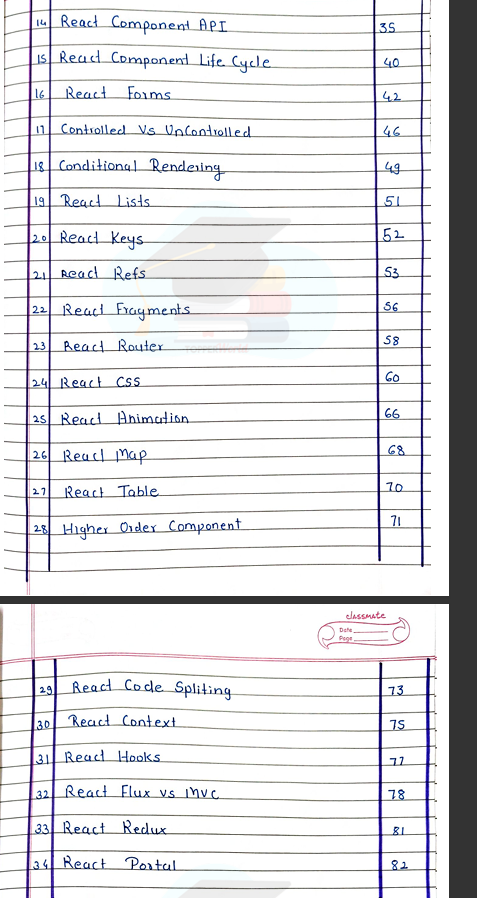 14 React Component API 35
15 React Component Life Cycle 40
16 React Forms 42
17 Controlled Vs UnControlled 46
18 Conditional Rendering 49
19 React Lists 51
20 React Keys 52
21 React Refs 53
22 React Fragments 56
23 React Router 58
24 React CSS 60
25 React Animation 66
26 React Map 68
27 React Table 70
28 Higher Order Component 71
classmate
Date
Page
29 React Code Spliting 73
30 React Context 75
31 React Hooks 77
32 React Flux vs MVC 78
33 React Redux 81
34 React Portal 82